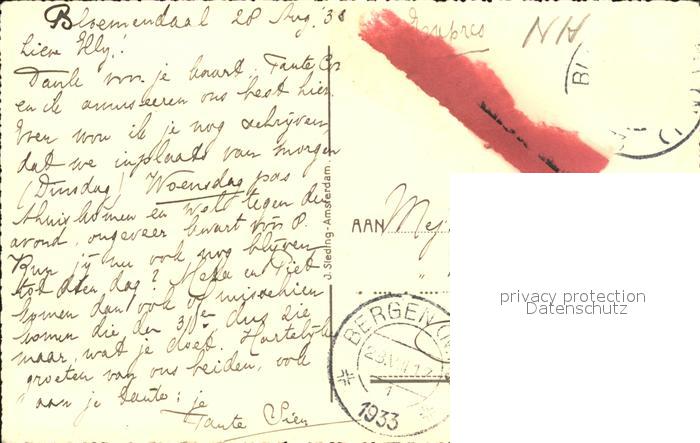 Bloemendaal 28 Aug. 33
Lieve Elly!
Dank voor je kaart. Tante Co
en ik amuseeren ons best hier.
Even wou ik je nog schrijven
dat we inplaats van morgen
(Dinsdag) Woensdag pas
thuis komen en wel tegen de
avond, ongeveer kwart vóór 8.
Kun jij nu ook nog blijven
tot dien dag? en Piet
komen dan ook of misschien
komen die den 31en, dus zie
maar, wat je doet. Hartelijke
groeten van ons beiden, ook
aan je tante; je
Tante Sien
Expres
J. Sleding-Amsterdam.
AAN Mej.
BERGEN (N
1933
privacy protection
Datenschutz